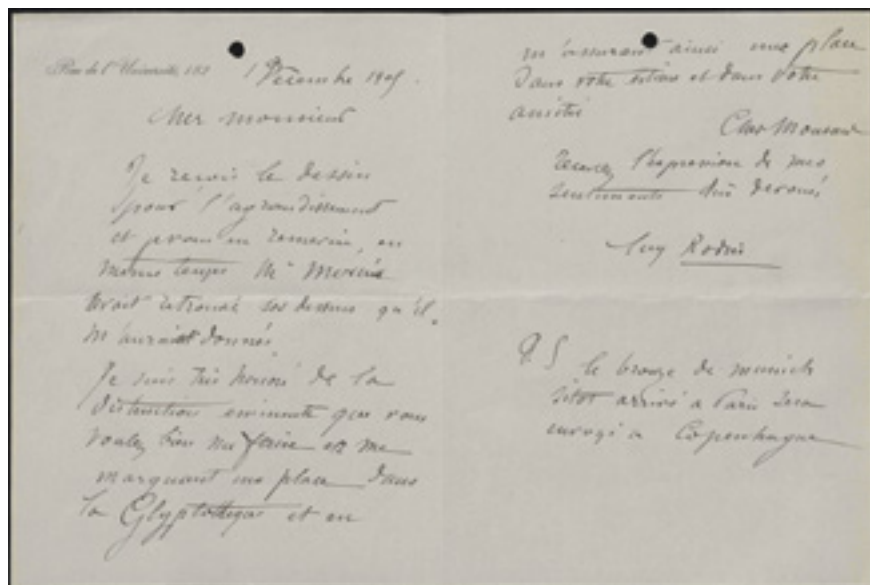 Rue de l'Université, 182
1 Décembre 1905.
Cher monsieur
Je reçois le dessin
pour l'agrandissement
et vous en remercie, en
même temps Mr
avait retrouvé ses dessins qu'il
m'aurait donnés
Je suis très honoré de la
distinction eminente que vous
voulez bien me faire en me
marquant une place dans
la Glyptotheque et en
m'assurant ainsi une place
dans votre estime et dans votre
amitié
Cher Monsieur
recevez l'expression de mes
sentiments dévoués
Aug Rodin
P.S le bronze de munich
sitot arrivé a Paris sera
envoyé a Copenhague